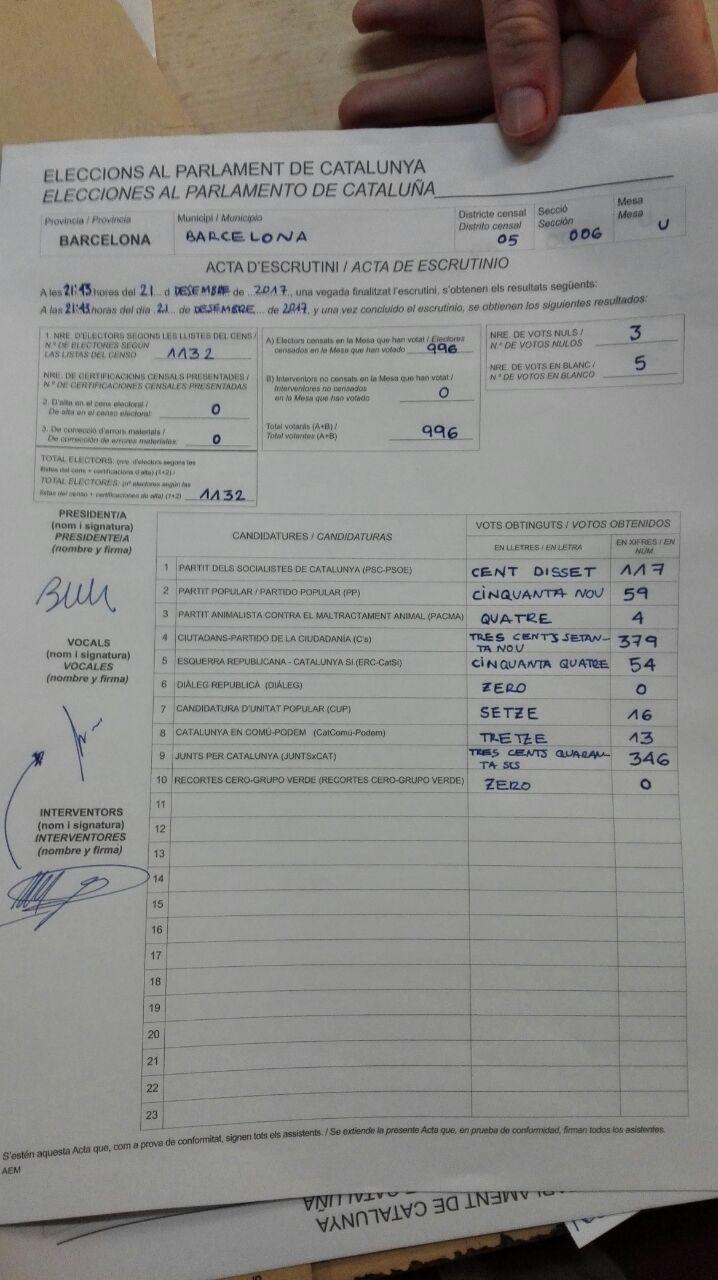 ELECCIONS AL PARLAMENT DE CATALUNYA
ELECCIONES AL PARLAMENTO DE CATALUÑA
Provincia / Provincia
BARCELONA
Municipi / Municipio
BARCELONA
Districte censal
Distrito censal
05
Secció
Sección
006
Mesa
Mesa
U
ACTA D'ESCRUTINI / ACTA DE ESCRUTINIO
A les 21:45 hores del 21 d DESEMBRE de 2017, una vegada finalitzat l'escrutini, s'obtenen els resultats següents:
A las 21:45 horas del día 21 de DESEMBRE de 2017, y una vez concluido el escrutinio, se obtienen los siguientes resultados:
1. NRE. D'ELECTORS SEGONS LES LLISTES DEL CENS /
N.º DE ELECTORES SEGÚN
LAS LISTAS DEL CENSO 1132
NRE. DE CERTIFICACIONS CENSALS PRESENTADES /
N.º DE CERTIFICACIONES CENSALES PRESENTADAS
2. D'alta en el cens electoral /
De alta en el censo electoral: 0
3. De correcció d'errors materials /
De corrección de errores materiales: 0
TOTAL ELECTORS: (nre. d'electors segons les
llistes del cens + certificacions d'alta) (1+2) /
TOTAL ELECTORES: (nº electores según las
listas del censo + certificaciones de alta) (1+2) 1132
A) Electors censats en la Mesa que han votat / Electores
censados en la Mesa que han votado 996
B) Interventors no censats en la Mesa que han votat /
Interventores no censados
en la Mesa que han votado 0
Total votants (A+B) /
Total votantes (A+B) 996
NRE. DE VOTS NULS /
N.º DE VOTOS NULOS 3
NRE. DE VOTS EN BLANC /
N.º DE VOTOS EN BLANCO 5
PRESIDENT/A
(nom i signatura)
PRESIDENTE/A
(nombre y firma)
VOCALS
(nom i signatura)
VOCALES
(nombre y firma)
INTERVENTORS
(nom i signatura)
INTERVENTORES
(nombre y firma)
CANDIDATURES / CANDIDATURAS
VOTS OBTINGUTS / VOTOS OBTENIDOS
EN LLETRES / EN LETRA
EN XIFRES / EN
NÚM.
1 PARTIT DELS SOCIALISTES DE CATALUNYA (PSC-PSOE) CENT DISSET 117
2 PARTIT POPULAR / PARTIDO POPULAR (PP) CINQUANTA NOU 59
3 PARTIT ANIMALISTA CONTRA EL MALTRACTAMENT ANIMAL (PACMA) QUATRE 4
4 CIUTADANS-PARTIDO DE LA CIUDADANÍA (C's) TRES CENTS SETAN-
TA NOU 379
5 ESQUERRA REPUBLICANA - CATALUNYA SÍ (ERC-CatSí) CINQUANTA QUATRE 54
6 DIÀLEG REPUBLICÀ (DIÀLEG) ZERO 0
7 CANDIDATURA D'UNITAT POPULAR (CUP) SETZE 16
8 CATALUNYA EN COMÚ-PODEM (CatComú-Podem) TRETZE 13
9 JUNTS PER CATALUNYA (JUNTSxCAT) TRES CENTS QUARAN-
TA SIS 346
10 RECORTES CERO-GRUPO VERDE (RECORTES CERO-GRUPO VERDE) ZERO 0
11
12
13
14
15
16
17
18
19
20
21
22
23
S'estén aquesta Acta que, com a prova de conformitat, signen tots els assistents. / Se extiende la presente Acta que, en prueba de conformidad, firman todos los asistentes.
AEM
PARLAMENT DE CATALUNYA